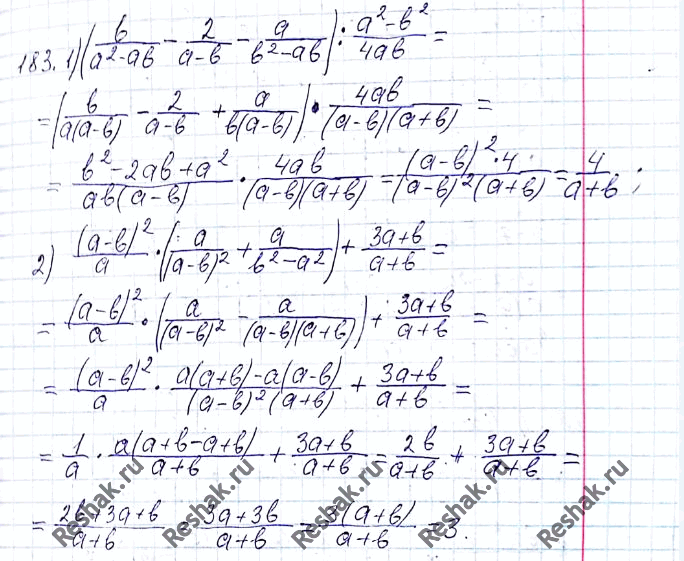 183. 1) (b/(a²-ab) - 2/(a-b) - a/(b²-ab)) : (a²-b²)/(4ab) =
= (b/(a(a-b)) - 2/(a-b) + a/(b(a-b))) · 4ab/((a-b)(a+b)) =
= (b²-2ab+a²)/(ab(a-b)) · 4ab/((a-b)(a+b)) = ((a-b)²·4)/((a-b)²(a+b)) = 4/(a+b);
2) (a-b)²/a · (a/(a-b)² + a/(b²-a²)) + (3a+b)/(a+b) =
= (a-b)²/a · (a/(a-b)² - a/((a-b)(a+b))) + (3a+b)/(a+b) =
= (a-b)²/a · (a(a+b)-a(a-b))/((a-b)²(a+b)) + (3a+b)/(a+b) =
= 1/a · a(a+b-a+b)/(a+b) + (3a+b)/(a+b) = 2b/(a+b) + (3a+b)/(a+b) =
= (2b+3a+b)/(a+b) = (3a+3b)/(a+b) = 3(a+b)/(a+b) = 3.
Reshak.ru
Reshak.ru
Reshak.ru
Reshak.ru